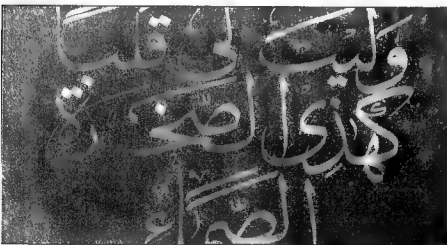 وليت لي قلبا
كهذي الصخرة
الصماء